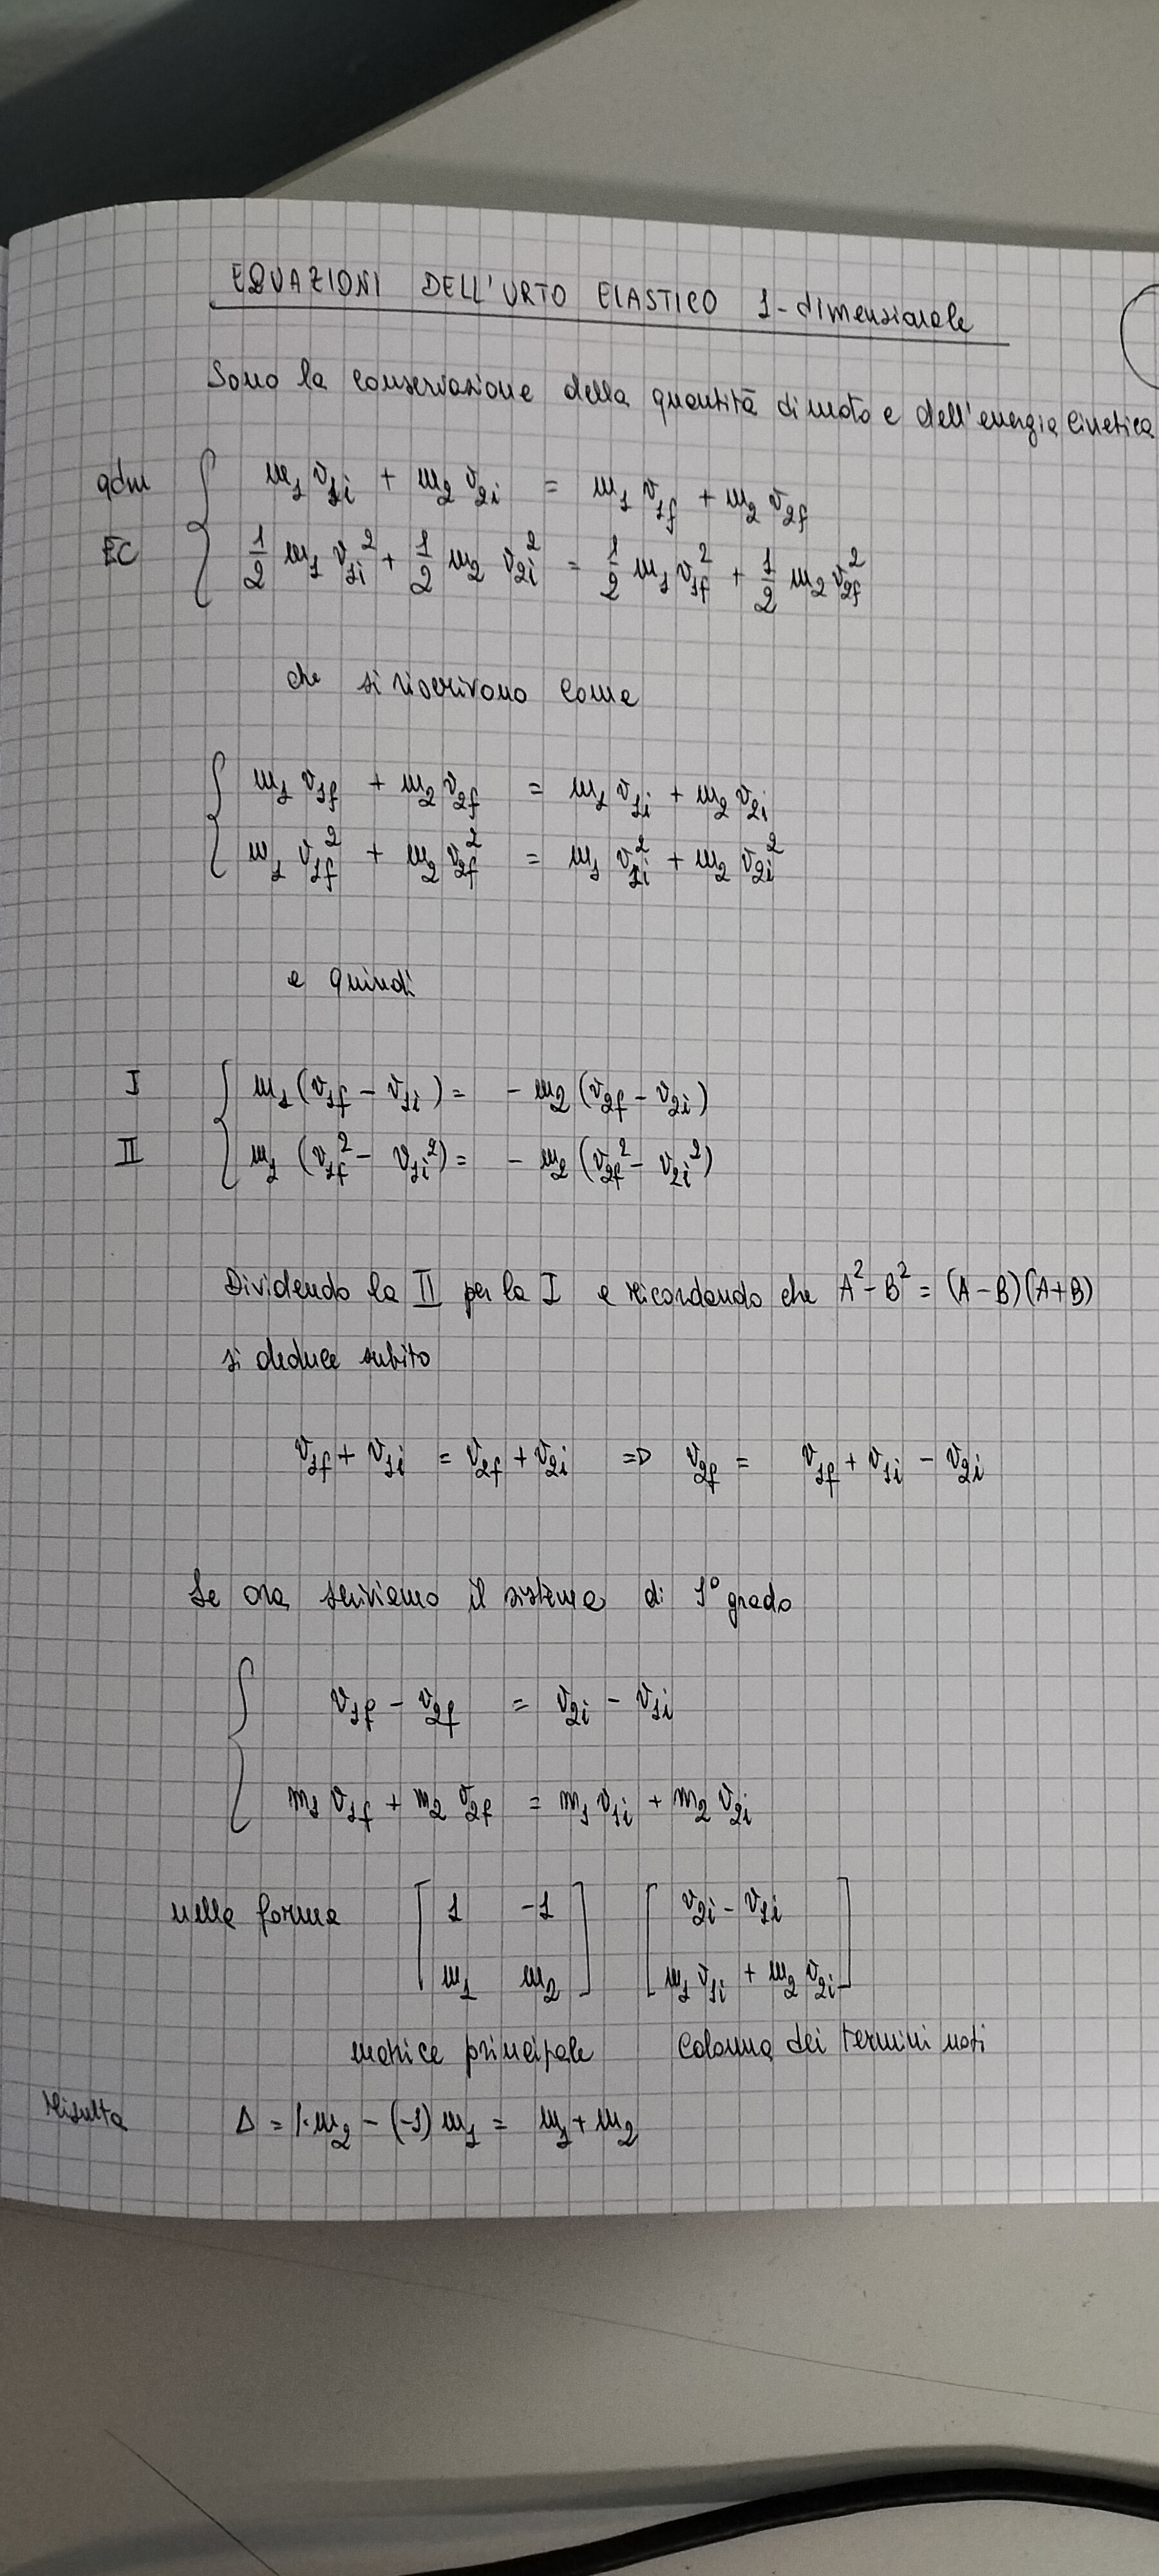 EQUAZIONI DELL'URTO ELASTICO 1-dimensionale
Sono la conservazione della quantità di moto e dell'energia cinetica
qdm { m₁ v₁ᵢ + m₂ v₂ᵢ = m₁ v₁f + m₂ v₂f
EC { 1/2 m₁ v₁ᵢ² + 1/2 m₂ v₂ᵢ² = 1/2 m₁ v₁f² + 1/2 m₂ v₂f²
che si riscrivono come
{ m₁ v₁f + m₂ v₂f = m₁ v₁ᵢ + m₂ v₂ᵢ
{ m₁ v₁f² + m₂ v₂f² = m₁ v₁ᵢ² + m₂ v₂ᵢ²
e quindi
I { m₁ (v₁f - v₁ᵢ) = - m₂ (v₂f - v₂ᵢ)
II { m₁ (v₁f² - v₁ᵢ²) = - m₂ (v₂f² - v₂ᵢ²)
Dividendo la II per la I e ricordando che A² - B² = (A - B)(A + B)
si deduce subito
v₁f + v₁ᵢ = v₂f + v₂ᵢ ⇒ v₂f = v₁f + v₁ᵢ - v₂ᵢ
Se ora scriviamo il sistema di 1° grado
{ v₁f - v₂f = v₂ᵢ - v₁ᵢ
{ m₁ v₁f + m₂ v₂f = m₁ v₁ᵢ + m₂ v₂ᵢ
nella forma [ 1 -1 ] [ v₂ᵢ - v₁ᵢ ]
[ m₁ m₂ ] [ m₁ v₁ᵢ + m₂ v₂ᵢ ]
matrice principale Colonna dei termini noti
Risulta Δ = 1·m₂ - (-1) m₁ = m₁ + m₂